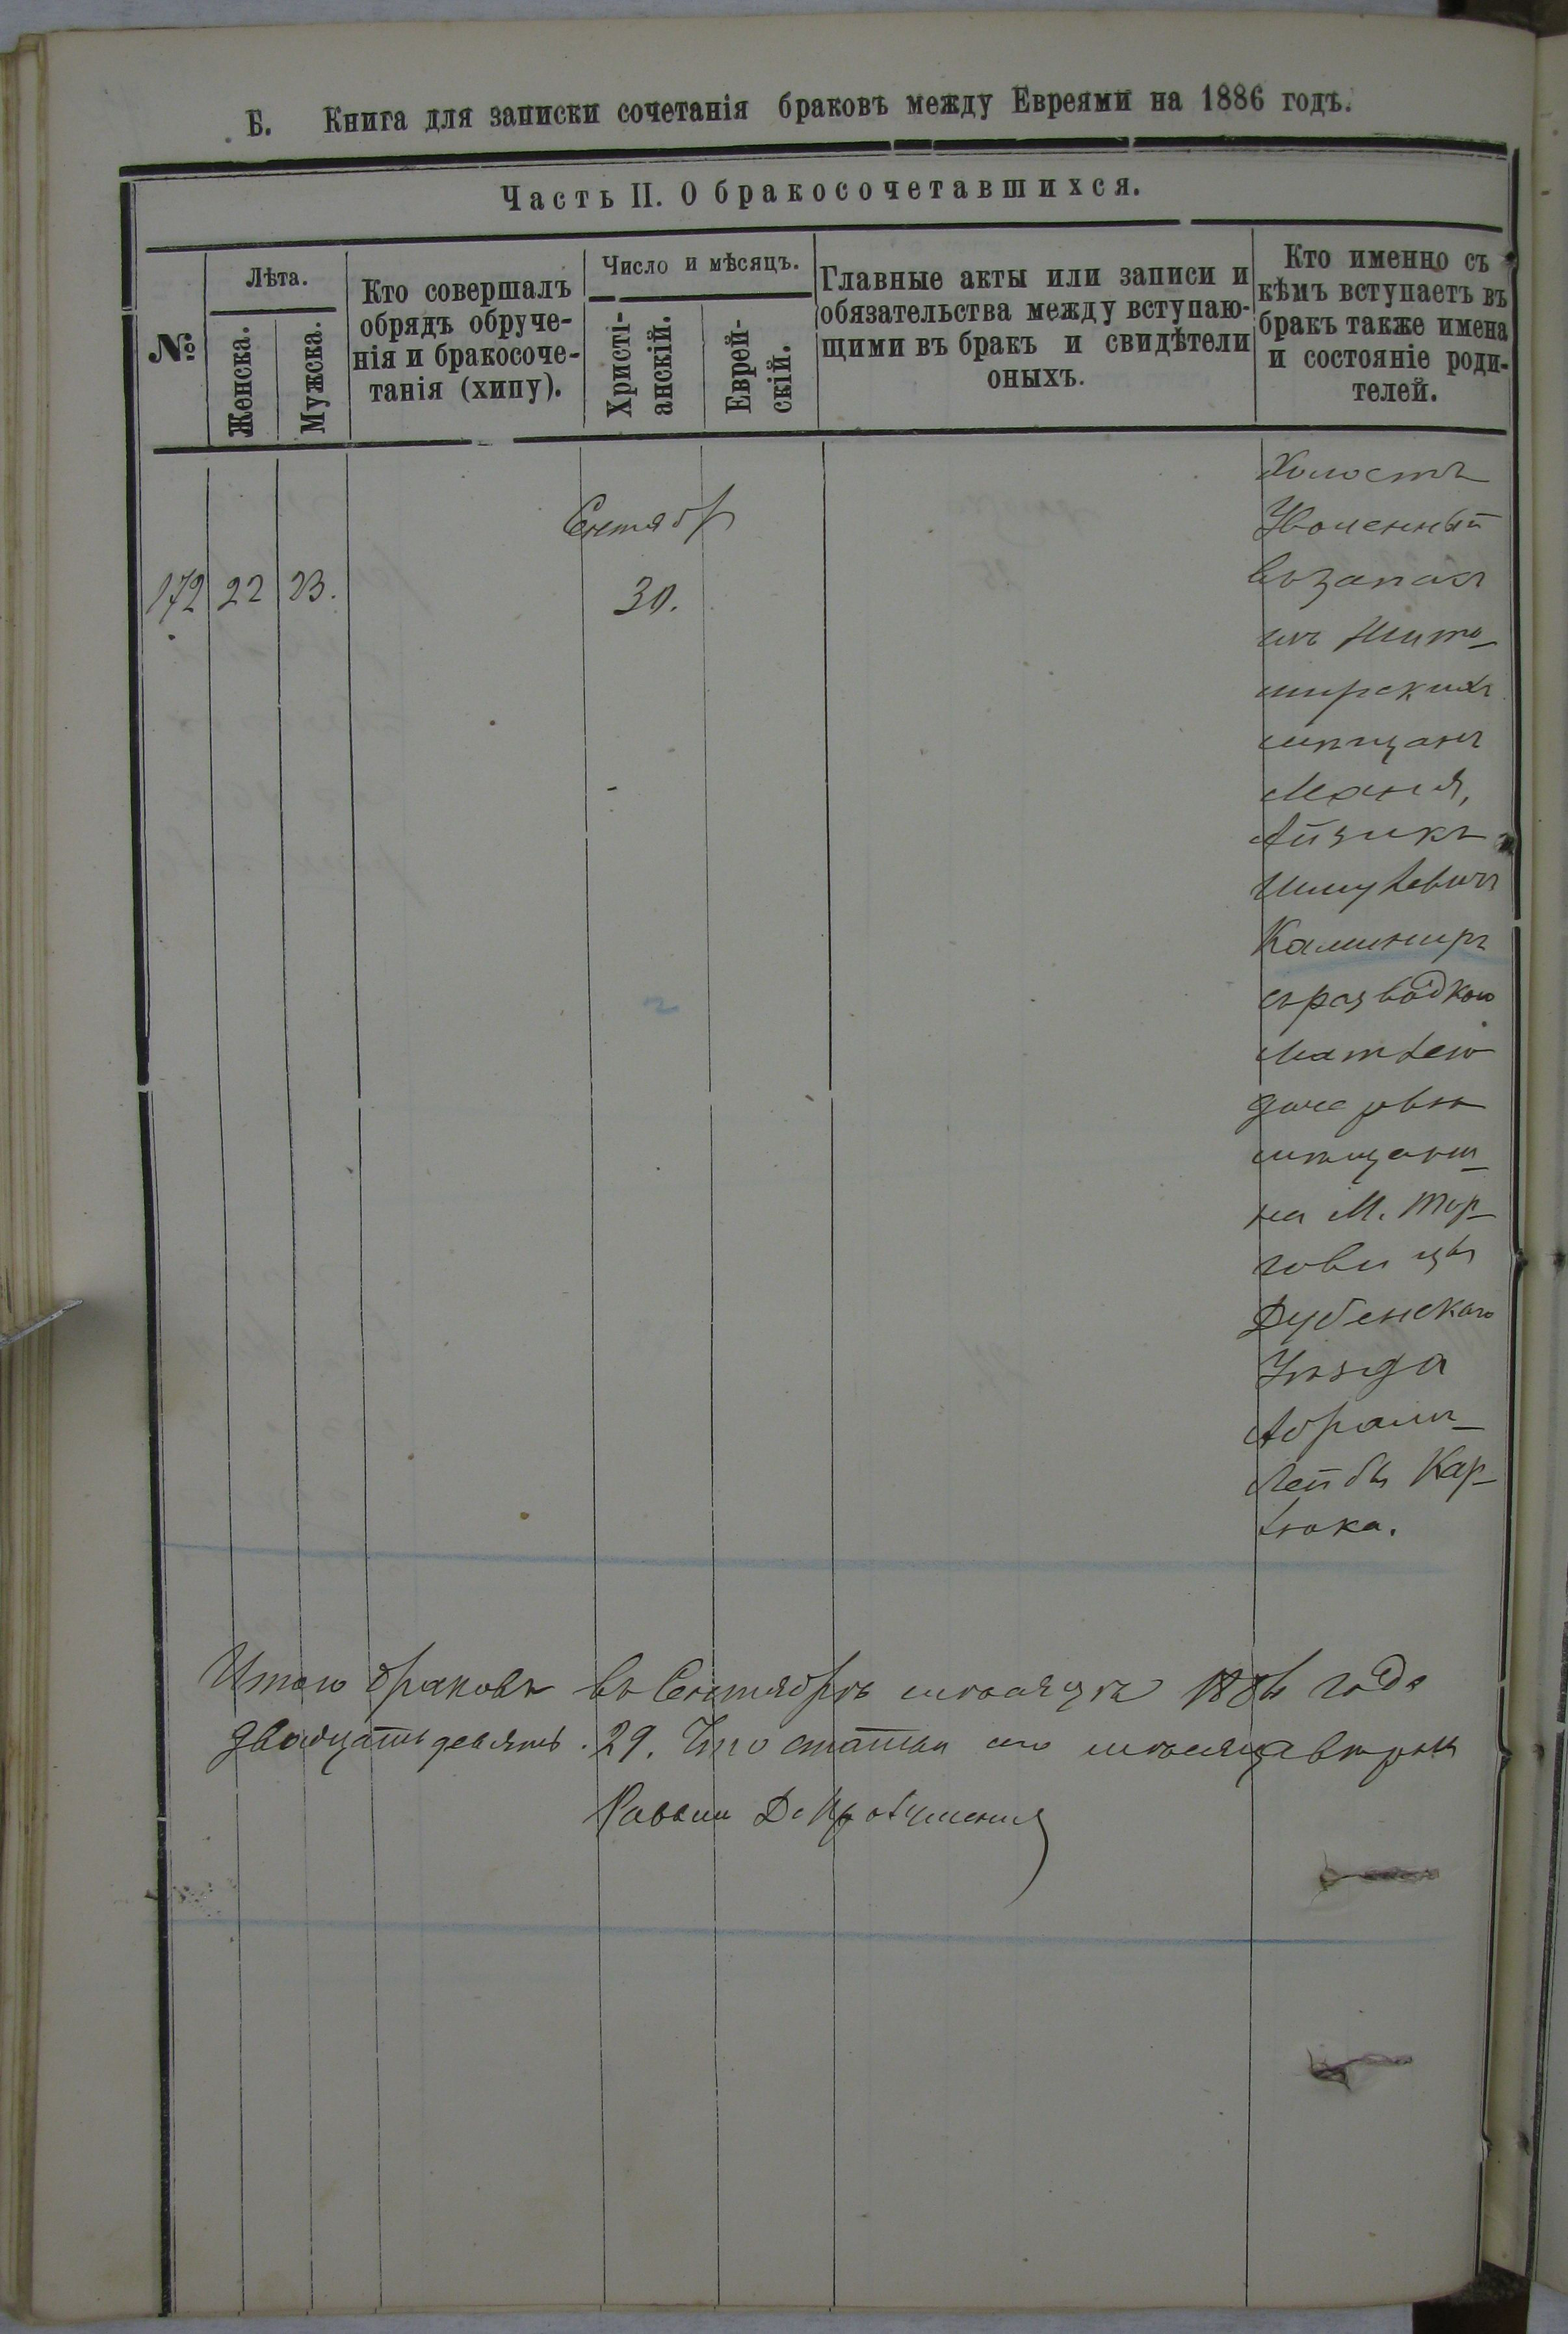 Б. Книга для записки сочетанія браковъ между Евреями на 1886 годъ.
Часть II. О бракосочетавшихся.
№
Лѣта.
Женска.
Мужска.
Кто совершалъ
обрядъ обруче-
нія и бракосоче-
танія (хипу).
Число и мѣсяцъ.
Христі-
анскій.
Еврей-
скій.
Главные акты или записи и
обязательства между вступаю-
щими въ бракъ и свидѣтели
оныхъ.
Кто именно съ
кѣмъ вступаетъ въ
бракъ также имена
и состояніе роди-
телей.
Сентябр
172 22 23. 30.
Холостъ
Уволенный
въ запасъ
изъ Жито-
мирскихъ
мѣщанъ
Айзикъ
Каминиръ
съ разводкою
дочерью
мѣщани-
на М. Тор-
говицы
Дубенскаго
Уѣзда
Абрамъ-
Лейбы Кар-
Итого браковъ въ Сентябрѣ мѣсяцѣ 1886 года
двадцать девять. 29. Что статьи сего мѣсяца вѣрны
Раввин